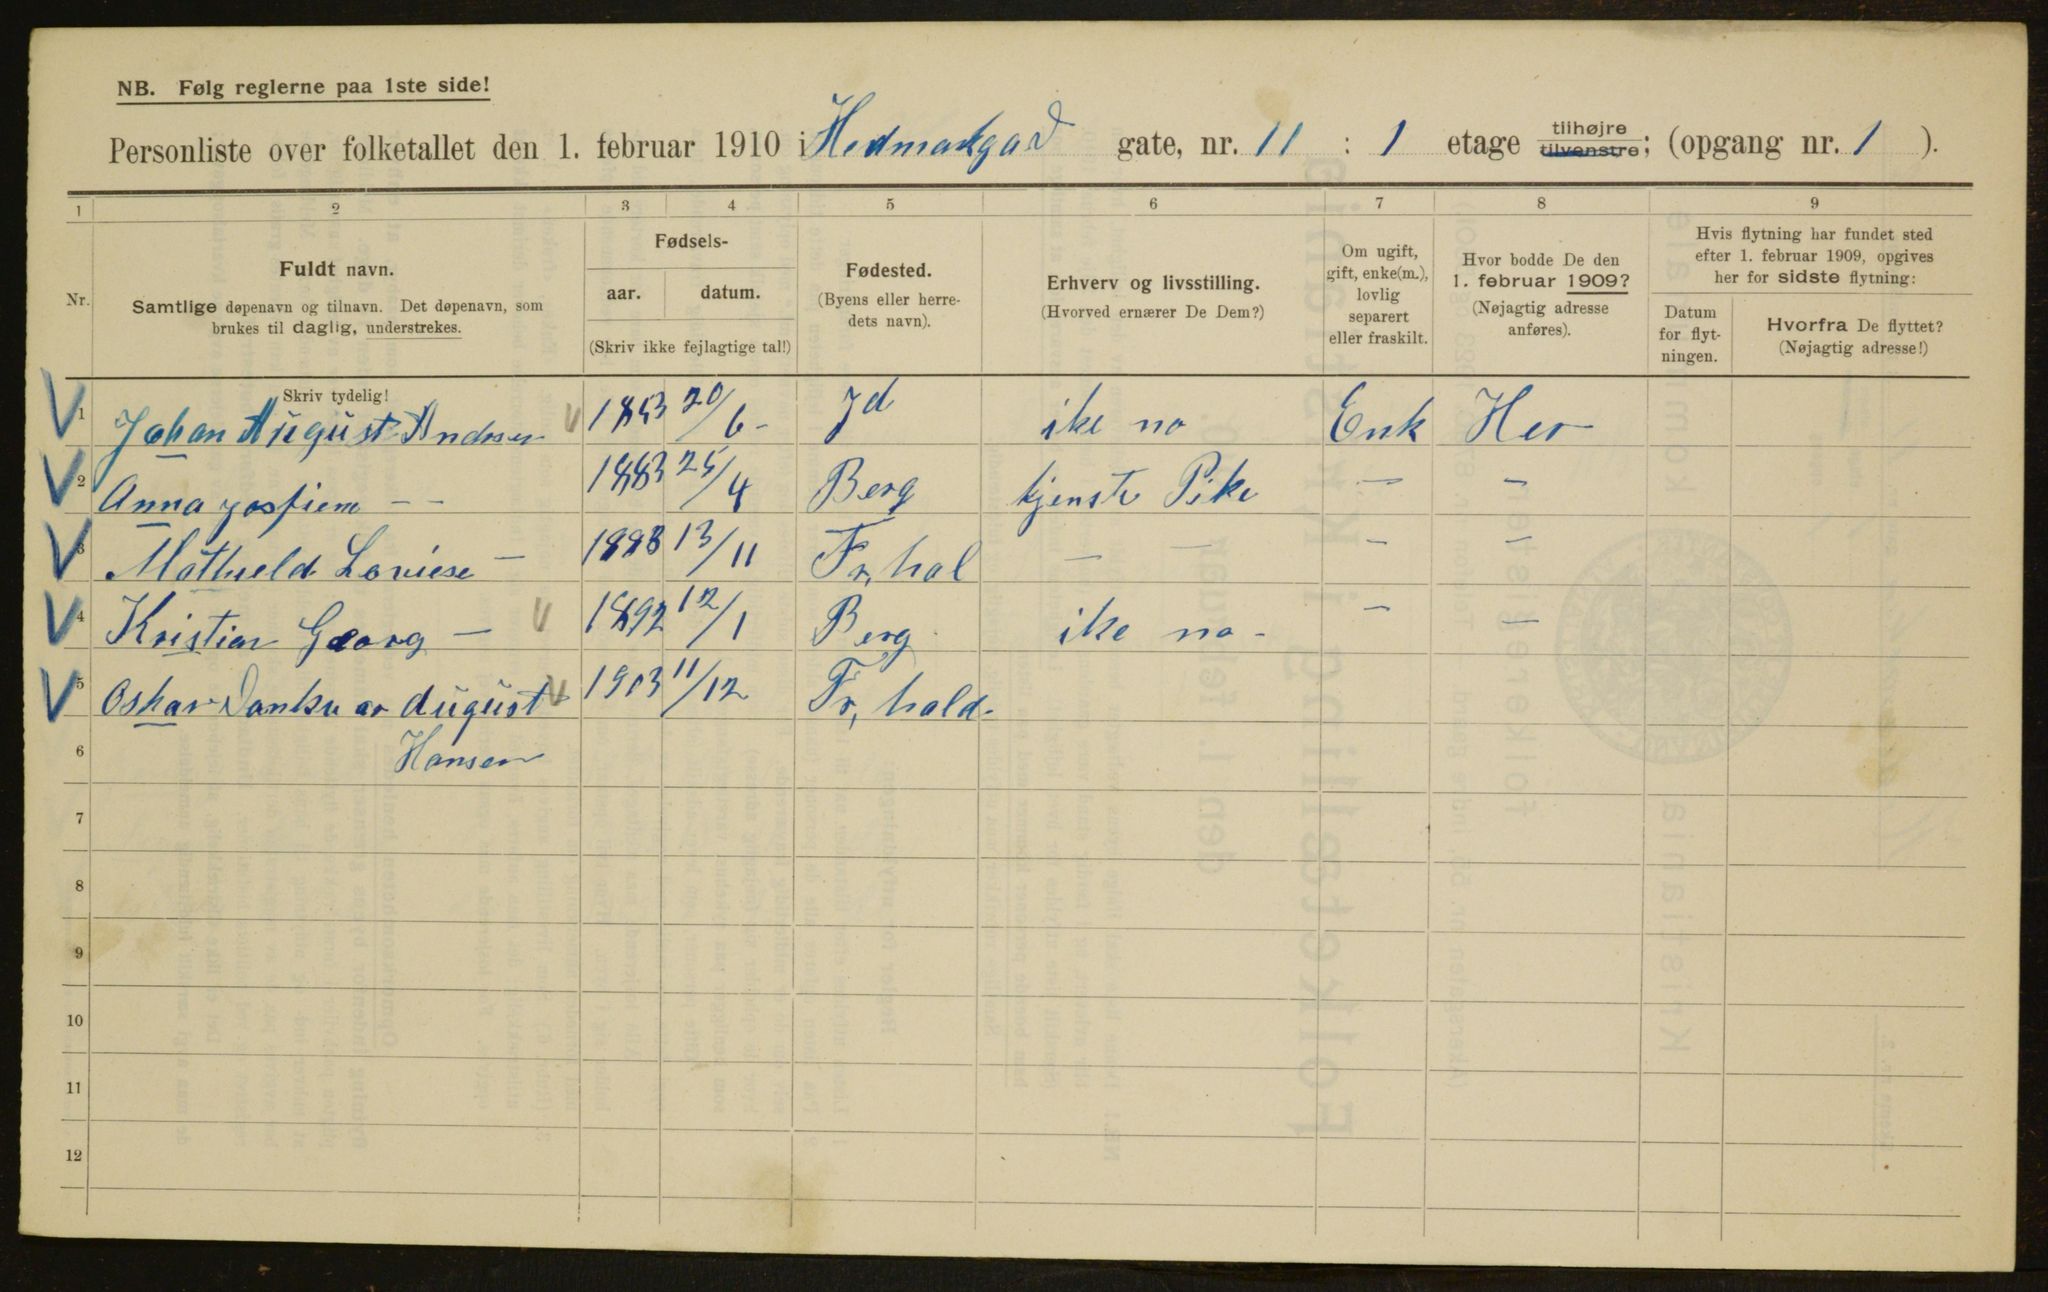 NB. Følg reglerne paa 1ste side!
Personliste over folketallet den 1. februar 1910 i Hedmarkgad gate, nr. 11 : 1 etage tilhøjre tilvenstre; (opgang nr. 1 ).
1 2 3 4 5 6 7 8 9
Nr. Fuldt navn. Samtlige døpenavn og tilnavn. Det døpenavn, som brukes til daglig, understrekes.
Fødsels- aar. datum. (Skriv ikke fejlagtige tal!)
Fødested. (Byens eller herredets navn).
Erhverv og livsstilling. (Hvorved ernærer De Dem?)
Om ugift, gift, enke(m.), lovlig separert eller fraskilt.
Hvor bodde De den 1. februar 1909? (Nøjagtig adresse anføres).
Hvis flytning har fundet sted efter 1. februar 1909, opgives her for sidste flytning:
Datum for flytningen. Hvorfra De flyttet? (Nøjagtig adresse!)
Skriv tydelig!
1 Johan August Andsen 1853 20/6 - Jd ike no Enk Her
2 Anna josfiene - - 1883 25/4 Berg tjenste Pike - -
3 Mathield Loviese - 1888 13/11 Fr, hal - - - -
4 Kristian Georg - 1892 12/1 Berg ike no - - -
5 Oskar Dankvar August 1903 11/12 Fr, hald.
6 Hansen
7
8
9
10
11
12